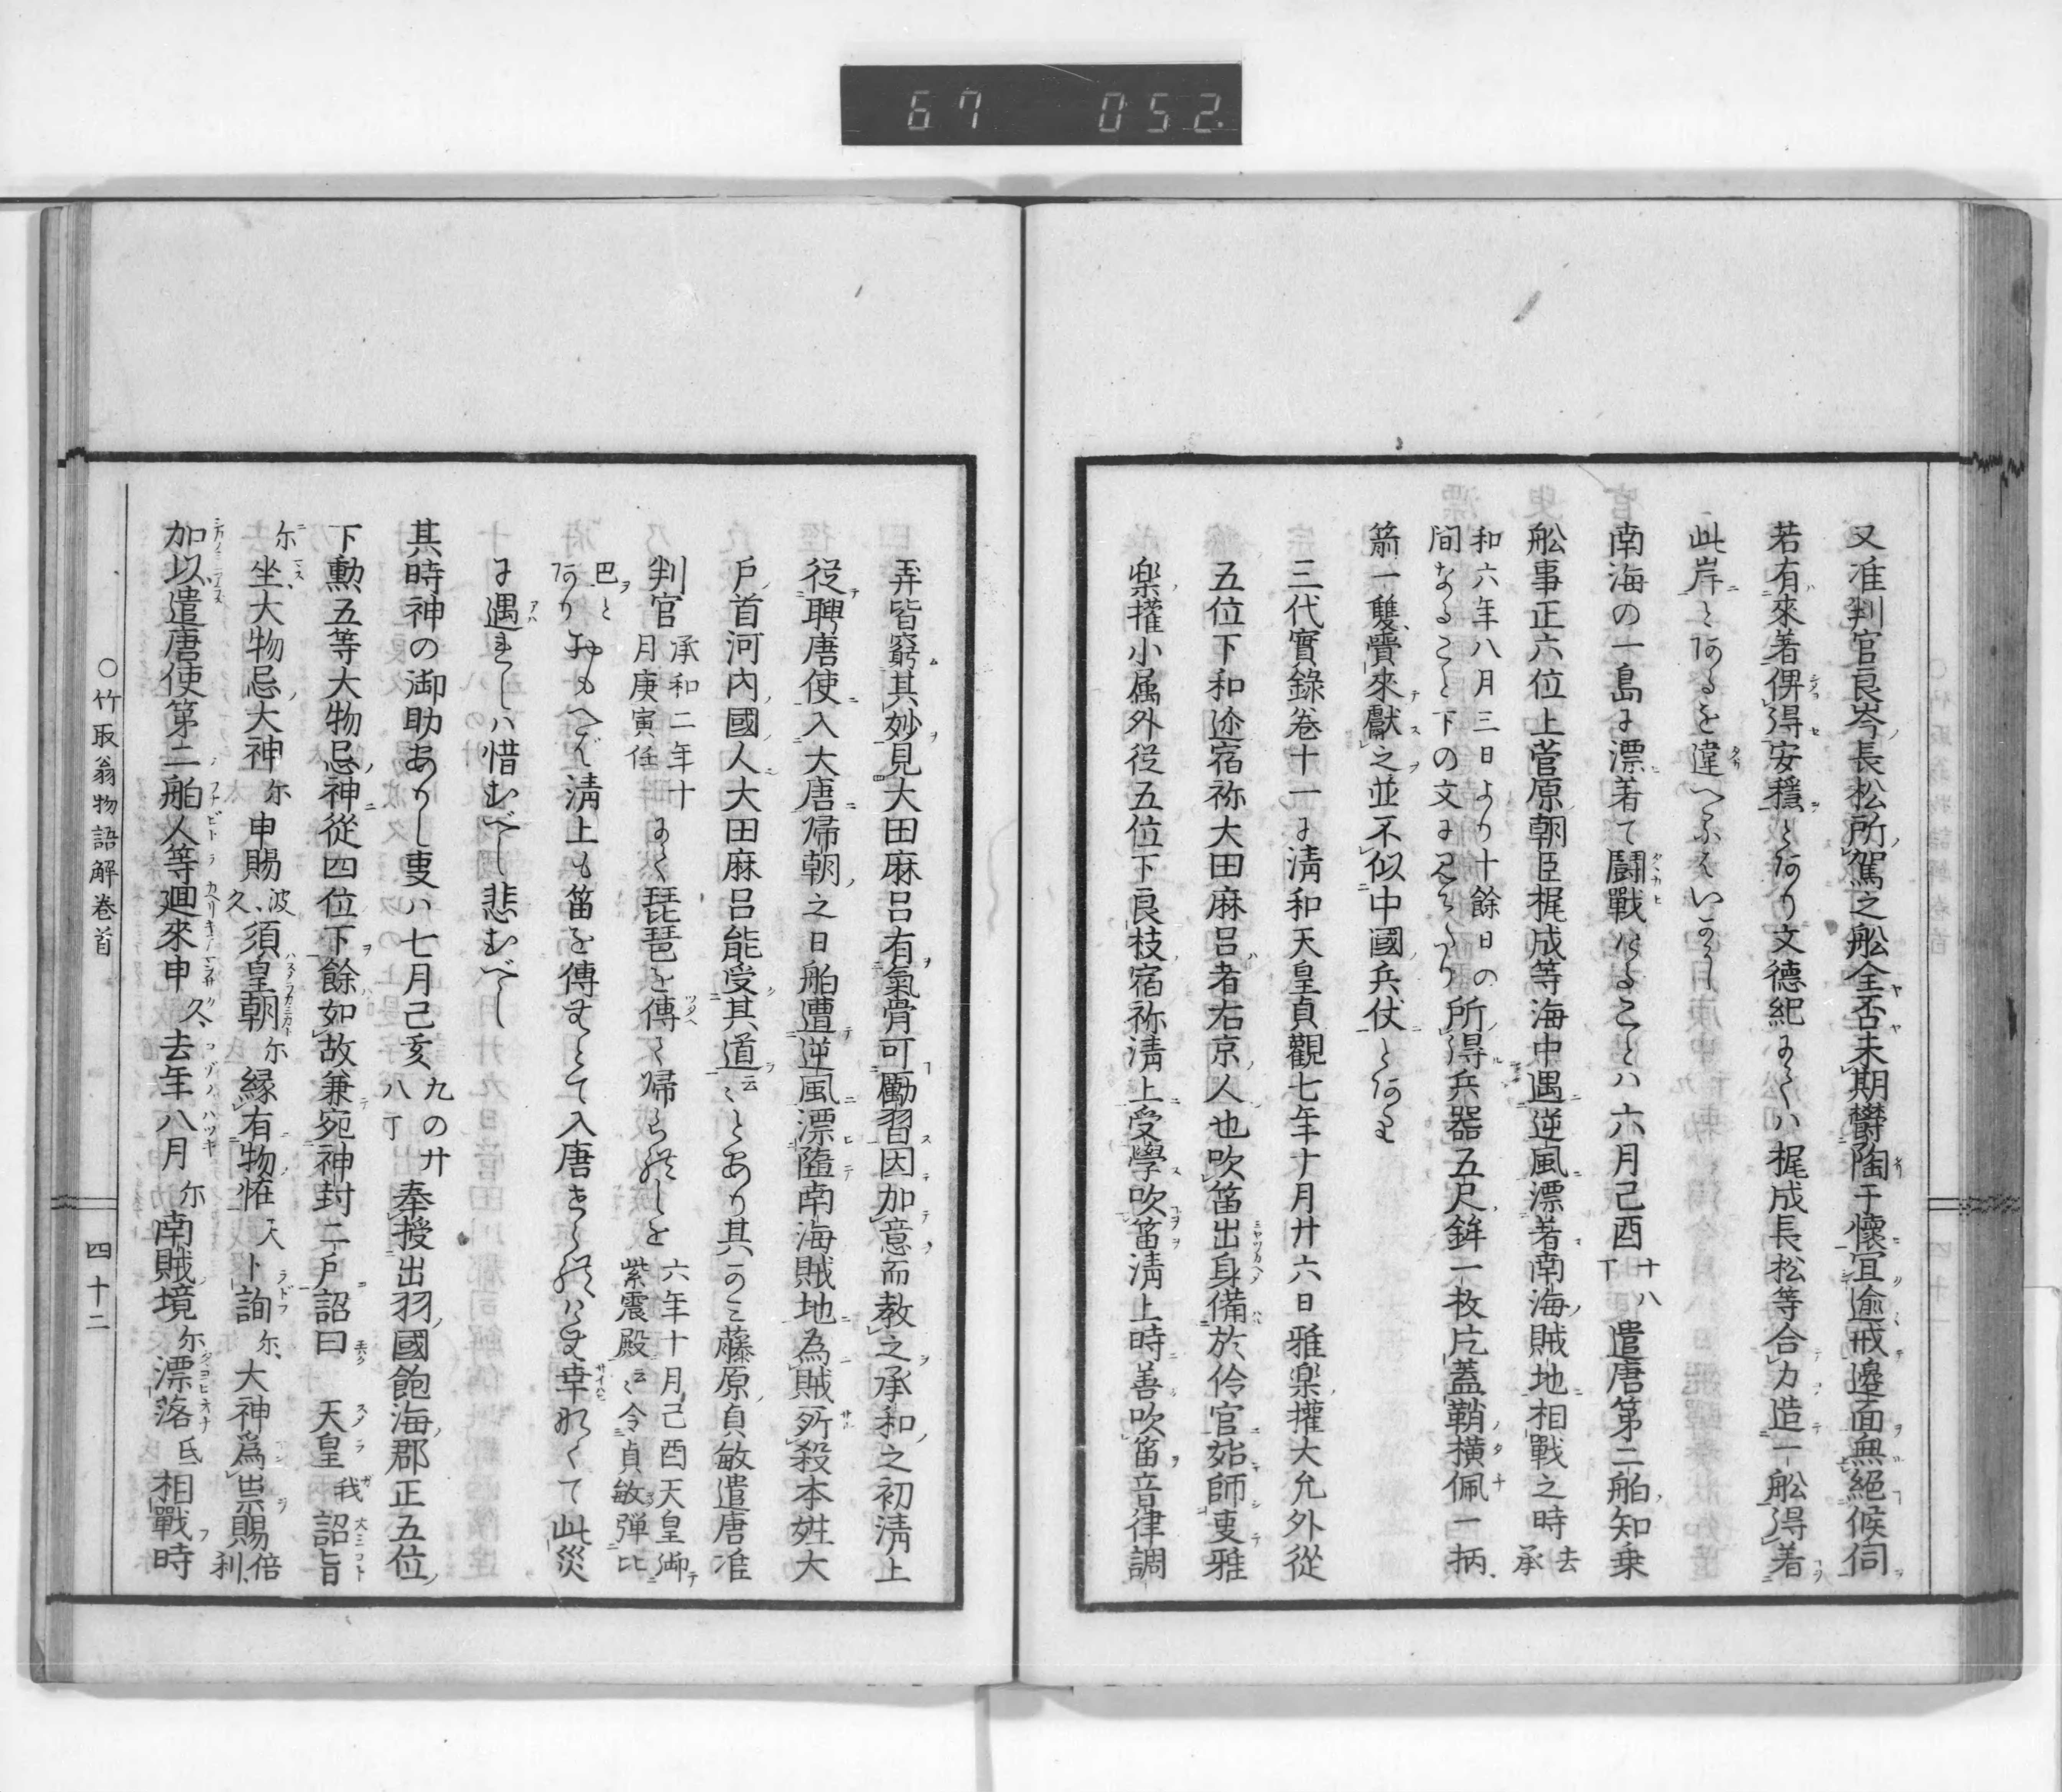 67 052
又准判官良岑長松所駕之舩全否未期欝陶于懷冝逾戒邊面無絕候伺
若有來著俾得安穩とあり文德紀にてハ梶成長松等合力造一舩得著
此岸とあるを違へるハいかに
南海の一島に漂著て鬪戰けることハ六月己酉十八丁遣唐第二舶知乗
舩事正六位上菅原朝臣梶成等海中遇逆風漂著南海賊地相戰之時去承
和六年八月三日より十餘日の間なること下の文に見えたり所得兵器五尺鉾一枚片蓋鞘橫佩一柄
箭一雙賷來獻之並不似中國兵仗とあれ
三代實錄卷十一に淸和天皇貞觀七年十月廿六日雅楽權大允外從
五位下和迩宿祢大田麻呂者右京人也吹笛出身備於伶官始師叓雅
楽權小属外從五位下良枝宿祢淸上受學吹笛淸上時善吹笛音律調
弄皆窮其妙見大田麻呂有氣骨可勵習因加意而教之承和之初淸上
從聘唐使入大唐帰朝之日舶遭逆風漂墮南海賊地為賊所殺本姓大
戶首河內國人大田麻呂能受其道云〻とあり其のミ藤原貞敏遣唐准
判官承和二年十月庚寅任にて琵琶を傳て帰られしを六年十月己酉天皇御紫震殿云〻令貞敏彈比
巴とありおもへば淸上も笛を傳むとて入唐せられけむ幸なくて此災
に遇ましハ惜むべし悲むべし
其時神の御助ありし叓ハ七月己亥九の廿八丁奉授出羽國飽海郡正五位
下勳五等大物忌神從四位下餘如故兼宛神封二戶詔曰天皇我詔旨
尓坐大物忌大神尓申賜波久須皇朝尓縁有物恠天卜詢尓大神爲祟賜倍利
加以遣唐使第二舶人等廻來申久去年八月尓南賊境尓漂落氐相戰時
○竹取翁物語解卷首
四十二